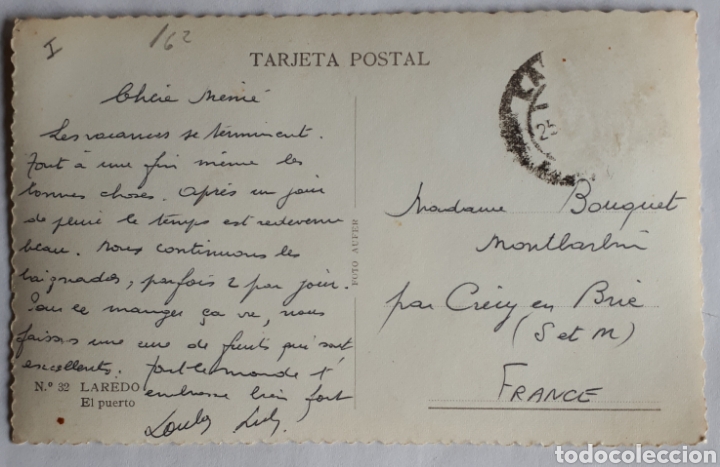 I
162
TARJETA POSTAL
Chère Mémé
Les vacances se terminent.
Tout à une fin même les
bonnes choses. Après un jour
de pluie le temps est redevenu
beau. Nous continuons les
baignades, parfois 2 par jour.
Pour ce manger ça va, nous
faisons une cure de fruits qui sont
excellents. Tout le monde t'
embrasse bien fort
FOTO AUFER
N.º 32 LAREDO
El puerto
25
Madame Bouquet
par Crécy en Brie
(S et M)
FRANCE
todocoleccion